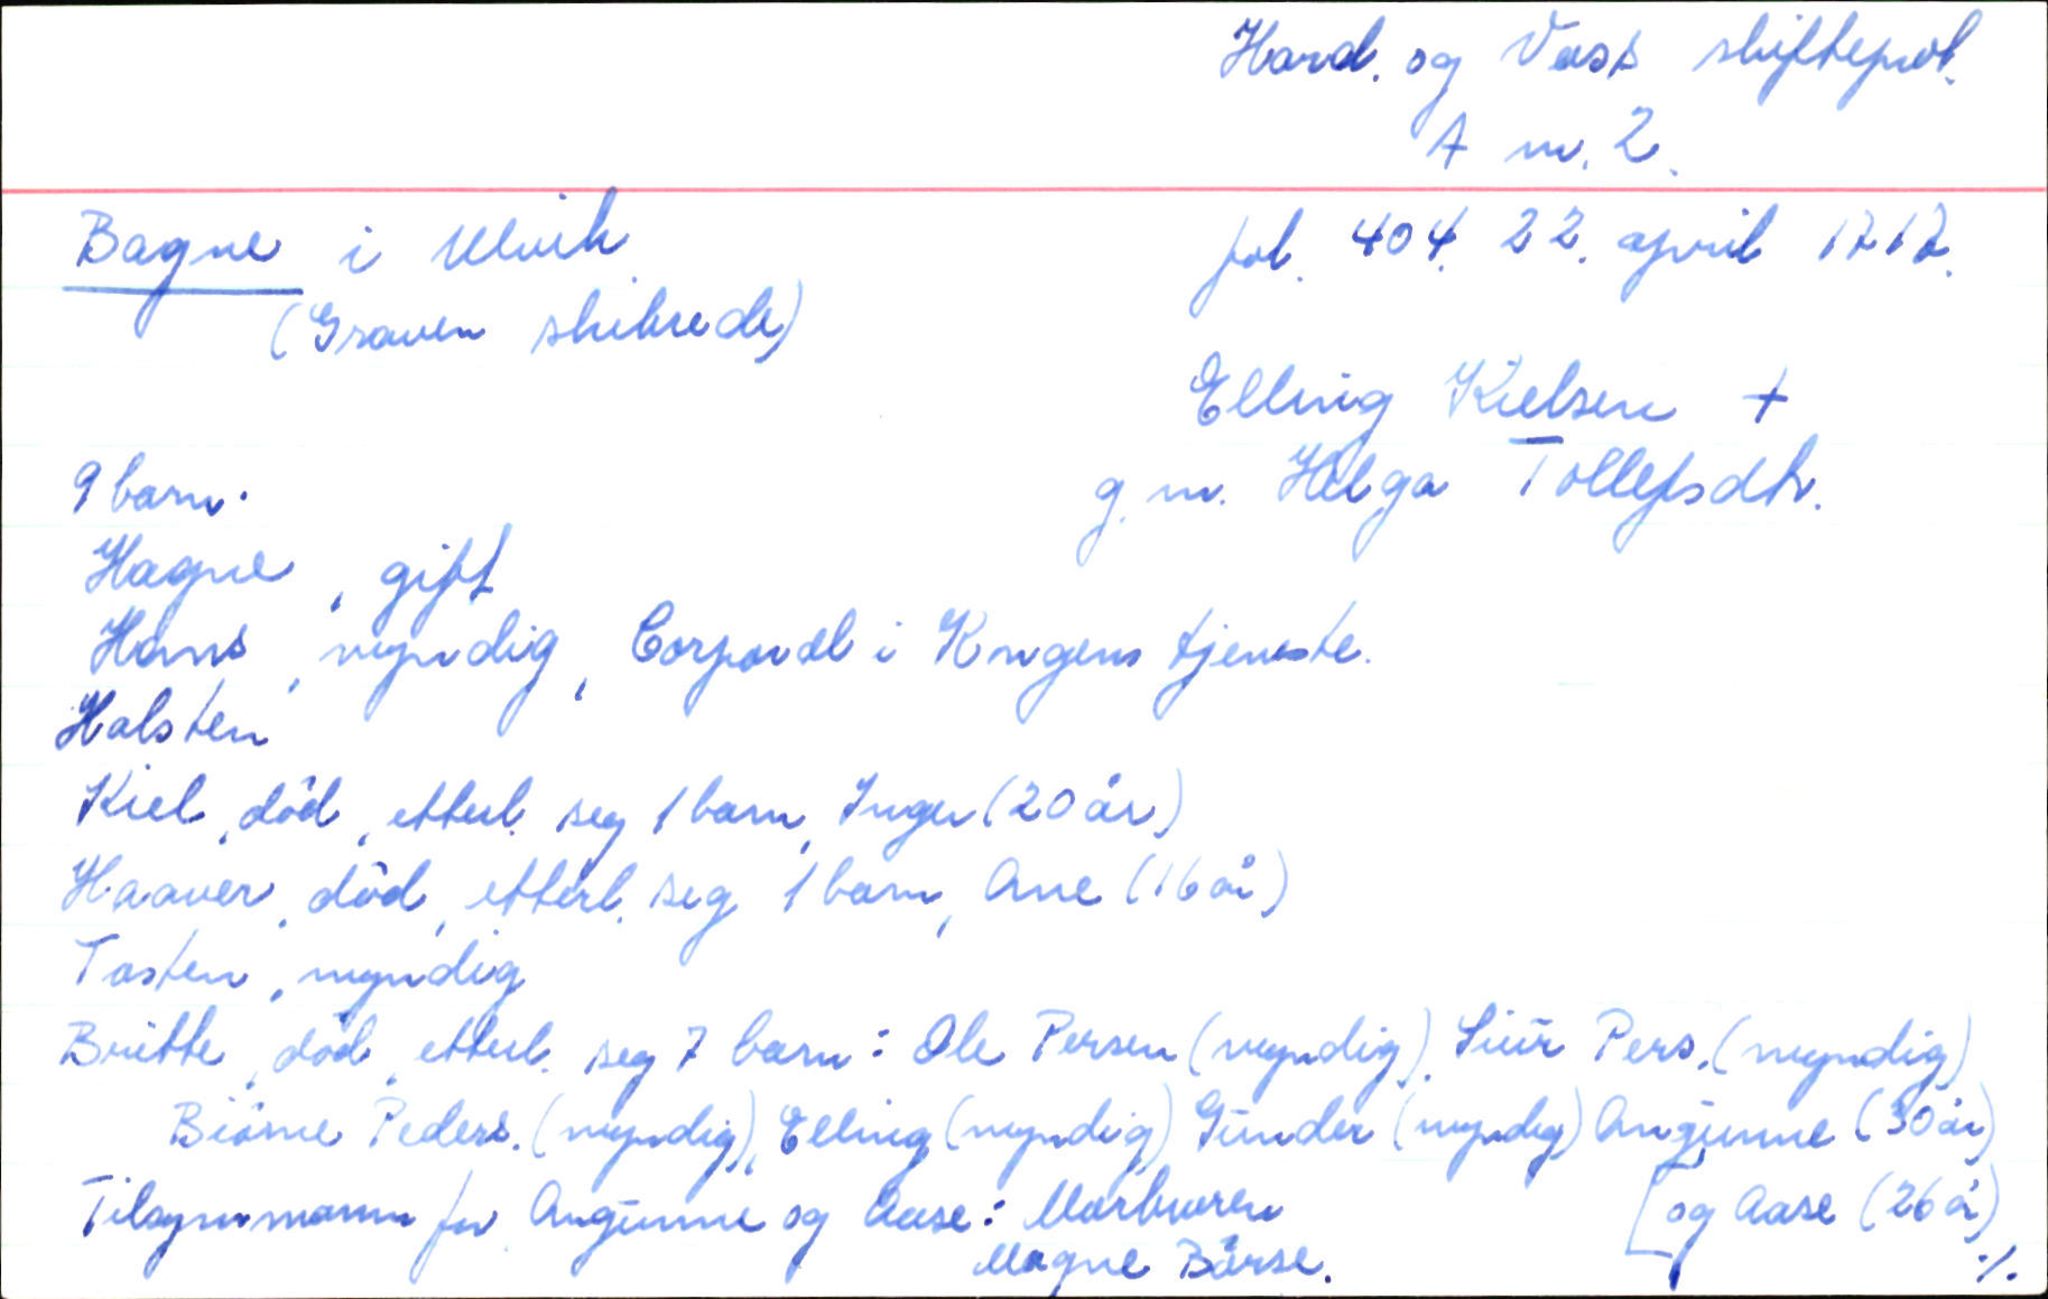 Hard. og Voss skifteprot.
A nr. 2.
Bagne i Ulvik
fol. 404. 22. april 1717.
(Graven skibrede)
Elling Kielsen +
g.m. Helga Tollefsdtr.
9 barn.
Hagne, gift
Hans, myndig, Corporal i Kongens tjeneste.
Halsten
Kiel, død, etterl. seg 1 barn, Inger (20 år)
Haaver, død, etterl. seg 1 barn, Ane (16 år)
Tosten, myndig
Britte, død, etterl. seg 7 barn: Ole Persen (myndig), Siur Pers. (myndig)
Biörne Peders. (myndig), Elling (myndig) Gunder (myndig) Angunne (30 år)
[og Aase (26 år)
Tilsynsmann for Angunne og Aase: Morbroren
Magne Börse.
./.